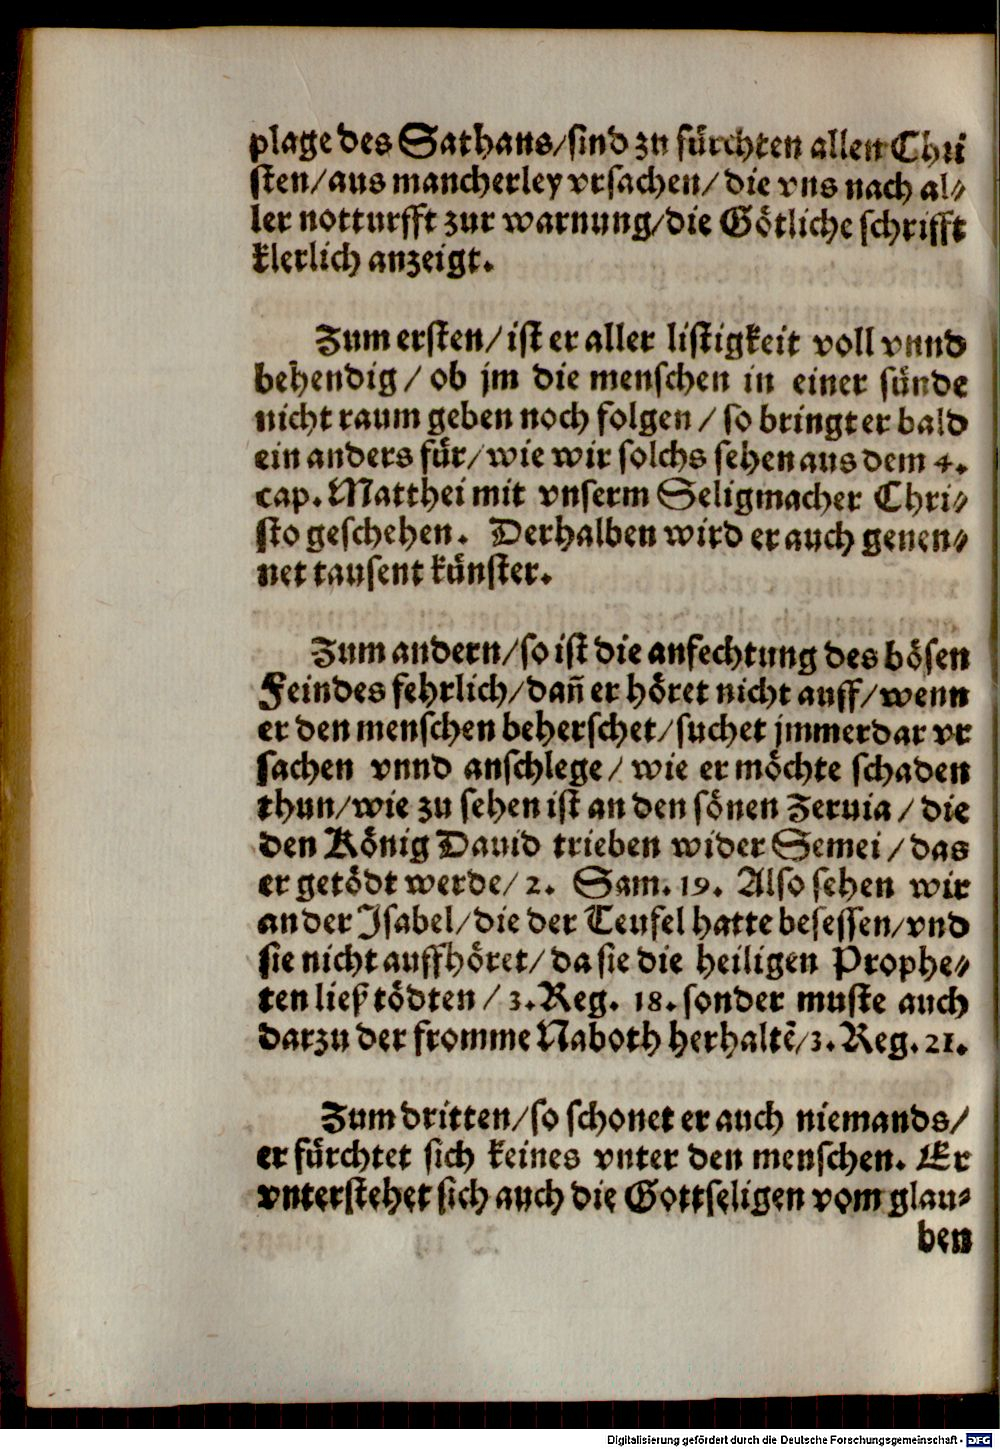 plage des Sathans/sind zu fürchten allen Chri
sten/aus mancherley vrsachen/die vns nach al⸗
ler notturfft zur warnung/die Götliche schrifft
klerlich anzeigt.
Zum ersten/ist er aller listigkeit voll vnnd
behendig/ob jm die menschen in einer sünde
nicht raum geben noch folgen/so bringt er bald
ein anders für/wie wir solchs sehen aus dem 4.
cap. Matthei mit vnserm Seligmacher Chri⸗
sto geschehen. Derhalben wird er auch genen⸗
net tausent künster.
Zum andern/so ist die anfechtung des bösen
Feindes fehrlich/dañ er höret nicht auff/wenn
er den menschen beherschet/suchet jmmerdar vr
sachen vnnd anschlege/wie er möchte schaden
thun/wie zu sehen ist an den sönen Zeruia/die
den König Dauid trieben wider Semei/das
er getödt werde/2. Sam. 19. Also sehen wir
an der Isabel/die der Teufel hatte besessen/vnd
sie nicht auffhöret/da sie die heiligen Prophe⸗
ten ließ tödten/3. Reg. 18. sonder muste auch
darzu der fromme Naboth herhaltē/3. Reg. 21.
Zum dritten/so schonet er auch niemands/
er fürchtet sich keines vnter den menschen. Er
vnterstehet sich auch die Gottseligen vom glau⸗
ben
Digitalisierung gefördert durch die Deutsche Forschungsgemeinschaft - DFG